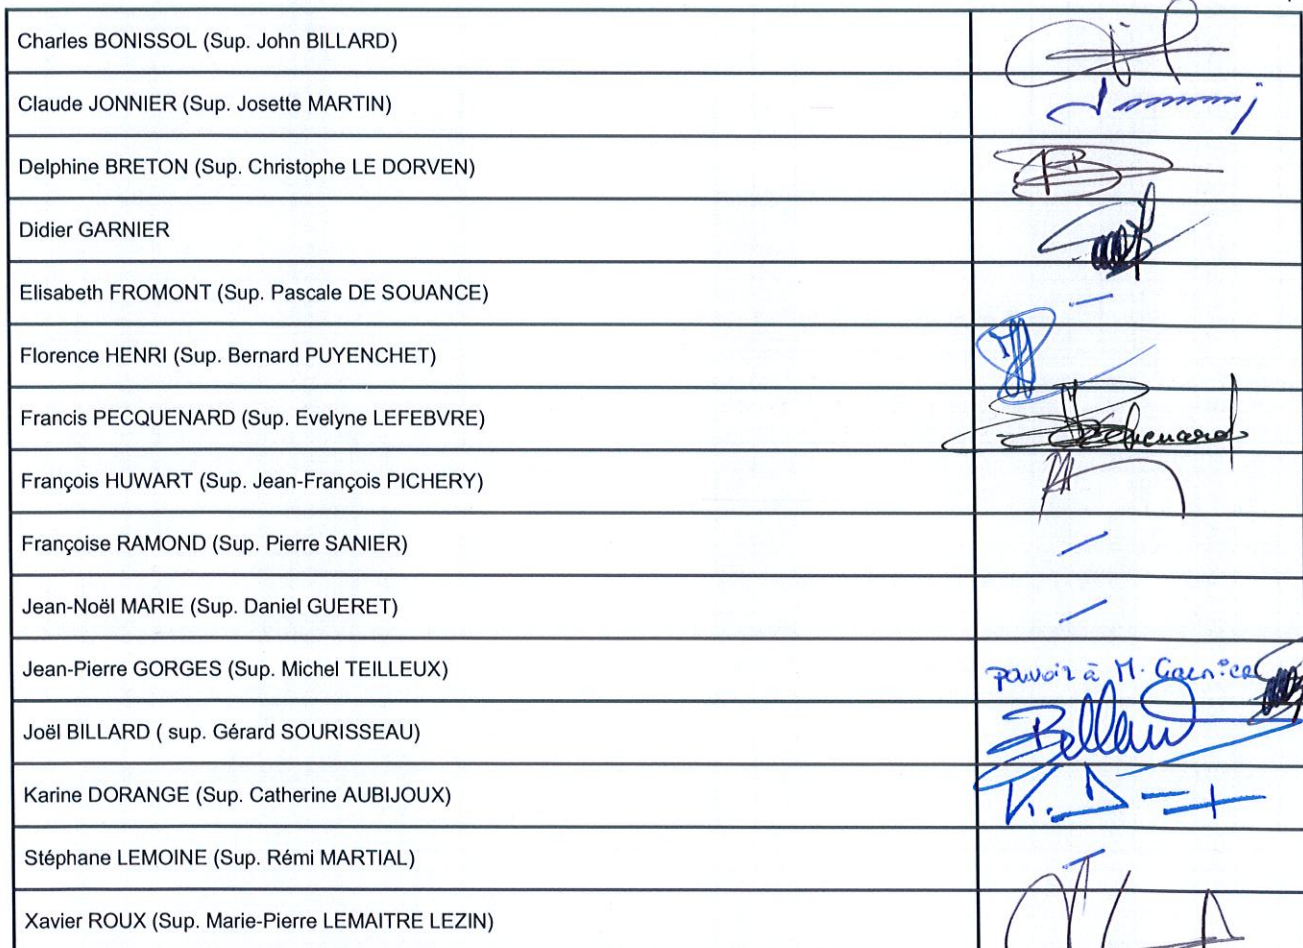 Charles BONISSOL (Sup. John BILLARD)
Claude JONNIER (Sup. Josette MARTIN)
Delphine BRETON (Sup. Christophe LE DORVEN)
Didier GARNIER
Elisabeth FROMONT (Sup. Pascale DE SOUANCE)
Florence HENRI (Sup. Bernard PUYENCHET)
Francis PECQUENARD (Sup. Evelyne LEFEBVRE)
François HUWART (Sup. Jean-François PICHERY)
Françoise RAMOND (Sup. Pierre SANIER)
Jean-Noël MARIE (Sup. Daniel GUERET)
Jean-Pierre GORGES (Sup. Michel TEILLEUX) pouvoir à M. Garnier
Joël BILLARD ( sup. Gérard SOURISSEAU)
Karine DORANGE (Sup. Catherine AUBIJOUX)
Stéphane LEMOINE (Sup. Rémi MARTIAL)
Xavier ROUX (Sup. Marie-Pierre LEMAITRE LEZIN)